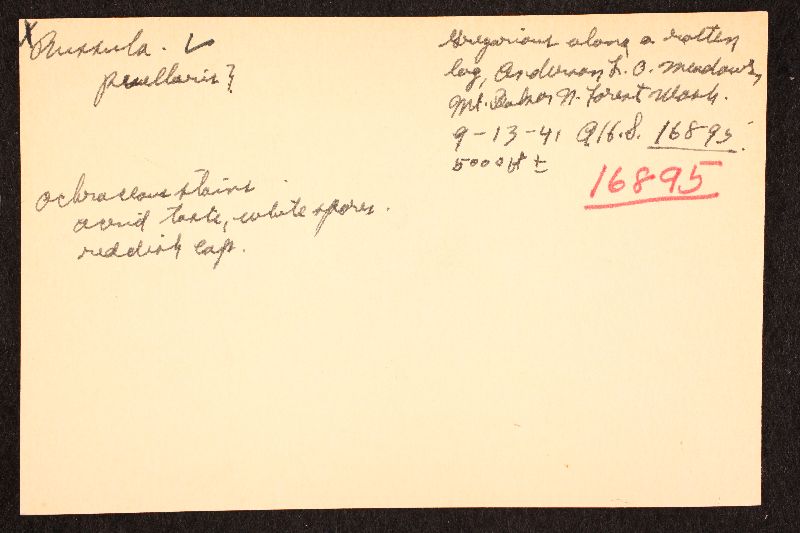 X Russula. ✓
puellaris?
Gregarious along a rotten
log, Anderson L. O. Meadows,
Mt. Baker N. Forest Wash.
9-13-41 AHS. 16895.
5000 ft ±
16895
ochraceous stains.
acrid taste, white spores.
reddish cap.